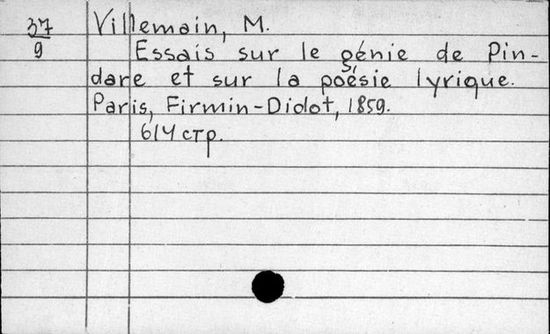 37
9
Villemain, M.
Essais sur le génie de Pin-
dare et sur la poésie lyrique.
Paris, Firmin-Didot, 1859.
614 стр.